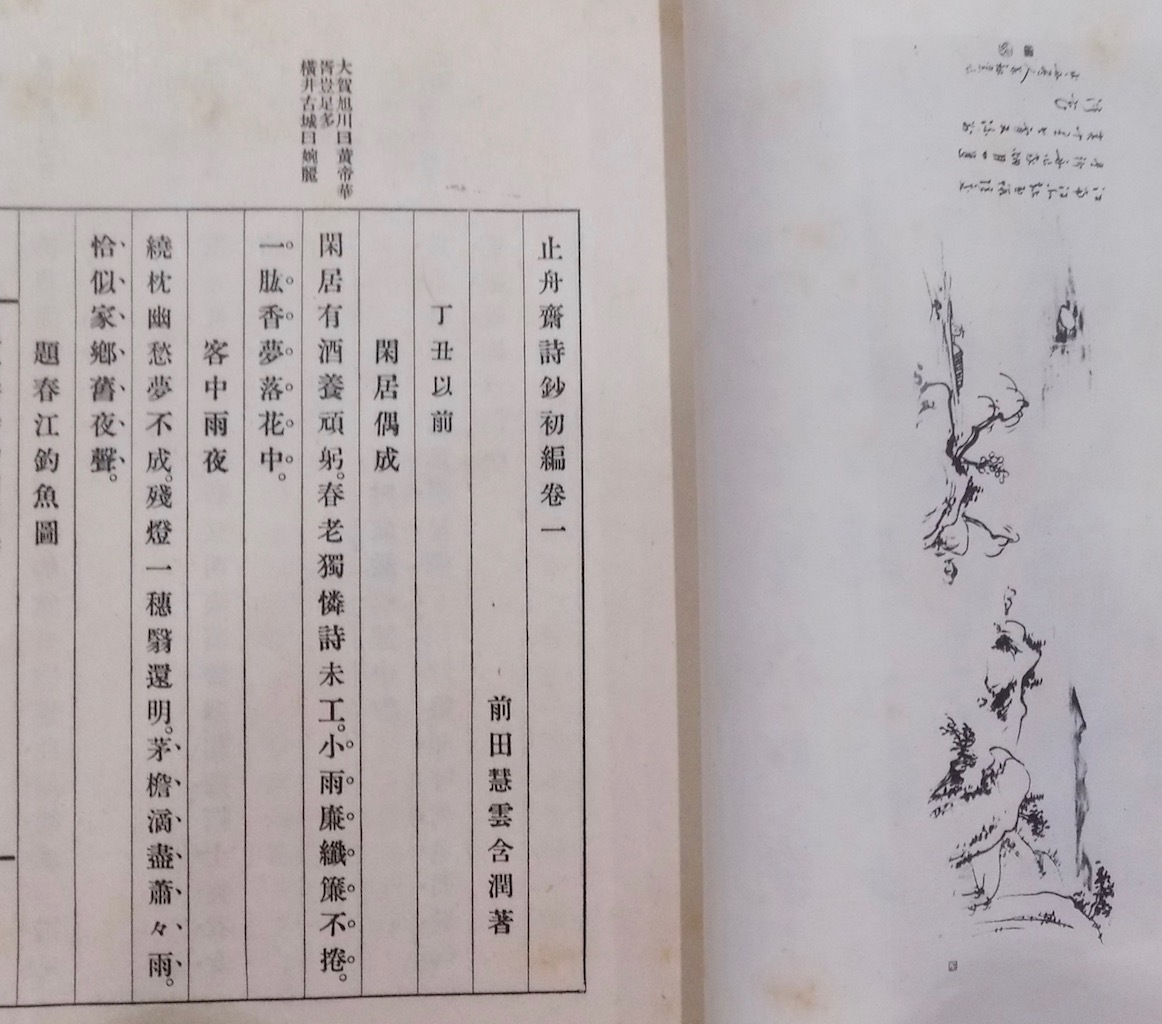 止舟齋詩鈔初編卷一
前田慧雲含潤著
丁丑以前
閑居偶成
閑居有酒養頑躬。春老獨憐詩未工。小雨廉纖簾不捲。
一肱香夢落花中。
客中雨夜
繞枕幽愁夢不成。殘燈一穗翳還明。茅檐滴盡蕭々雨。
恰似家鄉舊夜聲。
題春江釣魚圖
大賀旭川曰黃帝華
胥豈足多
橫井古城曰婉麗